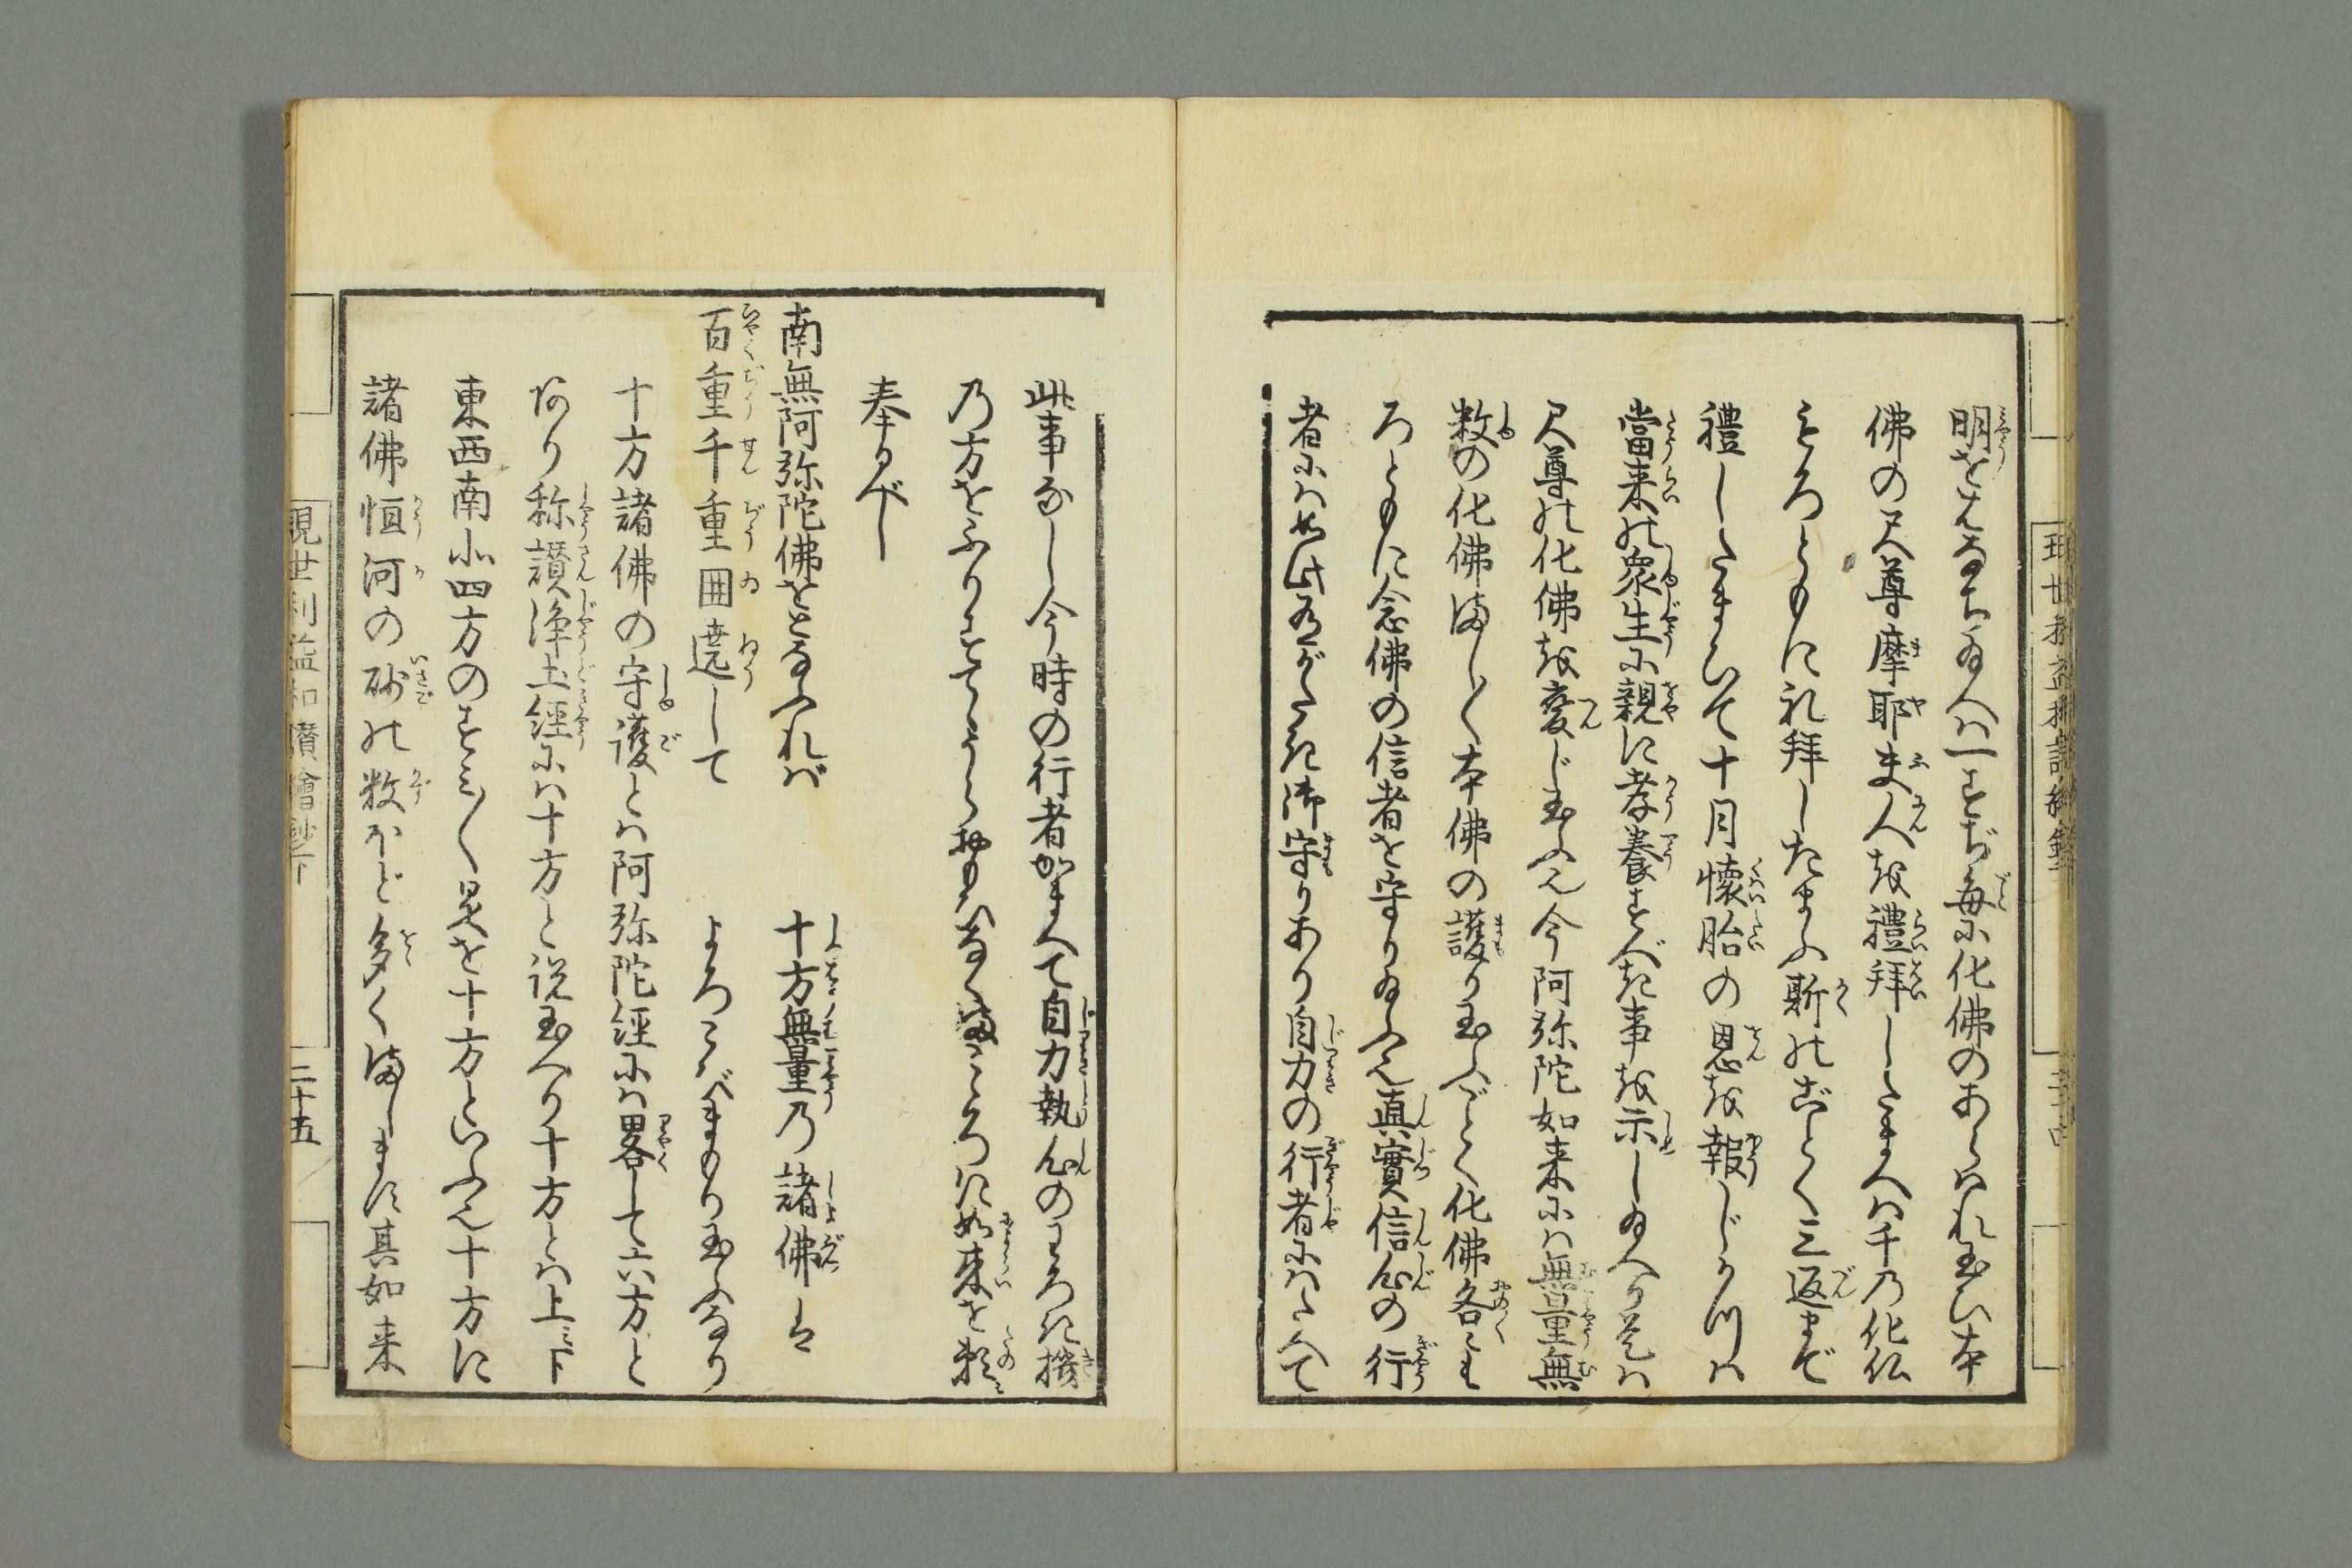 明をはなち為へば一すぢ毎に化佛のあらはれ玉ひ本
佛の尺尊摩耶夫人を禮拜したまへば千乃化仏
もろともに礼拜したまふ斯のごとく三返まで
禮したまひて十月懐胎の恩を報じ
當来の衆生に親に孝養すべき事を示し為へり
尺尊の化佛を変じ玉ふ今阿弥陀如来には無量無
数の化佛ましまし本佛の護り玉ふごとく化佛各々も
ろともに念佛の信者を守り為ふ真實信心の行
者には此ありがたき御守りあり自力の行者にはたへて
此事なし今時の行者かまへて自力執心のわろき機
乃方をふりすてうらおもひなくまごころに如来を頼み
奉るべし
南無阿弥陀佛をとなふれば 十方無量乃諸佛は
百重千重囲遶して よろこびまもり玉ふなり
十方諸佛の守護とは阿弥陀経には畧して六方と
あり称讃浄土経には十方と説玉へり十方とは上下
東西南北四方のすみ〴〵是を十方といふ十方に
諸佛恒河の砂の数ほど多くまします其如来
現世利益和讃繪鈔下
二十五